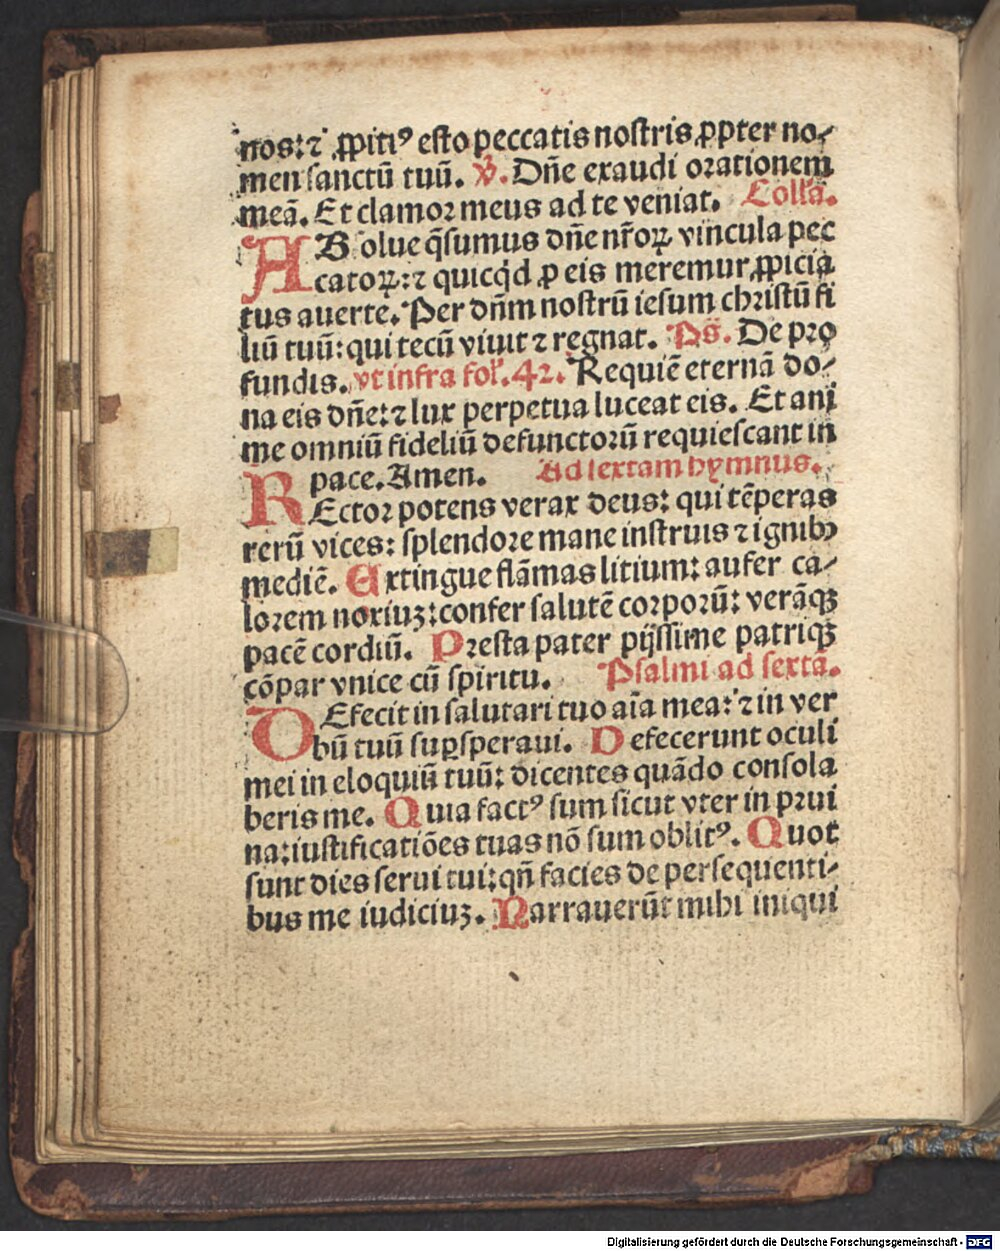 nos: ⁊ ꝓpitiꝰ esto peccatis nostris ꝓpter no⸗
men sanctū tuū. ℣. Dn̄e exaudi orationem
meā. Et clamor meus ad te veniat. Coll'a.
ABsolue q̄sumus dn̄e nr̄oꝝ vincula pec
catoꝝ: ⁊ quicq̇d ꝓ eis meremur ꝓpicia
tus auerte. Per dn̄m nostrū iesum christū fi
liū tuū: qui tecū viuit ⁊ regnat. Ps̄. De pro
fundis. vt infra fol'. 42. Requiē eternā do⸗
na eis dn̄e: ⁊ lux perpetua luceat eis. Et ani
me omniū fideliū defunctorū requiescant in
pace. Amen. Ad sextam hymnus.
REctor potens verax deus: qui tēperas
rerū vices: splendore mane instruis ⁊ ignibꝰ
mediē. Extingue flāmas litium: aufer ca⸗
lorem noxiuꝫ: confer salutē corporū: verāqꝫ
pacē cordiū. Presta pater pijssime patriqꝫ
cōpar vnice cū spiritu. Psalmi ad sextā.
DEfecit in salutari tuo aīa mea: ⁊ in ver
bū tuū suꝑsperaui. Defecerunt oculi
mei in eloquiū tuū: dicentes quādo consola
beris me. Quia factꝰ sum sicut vter in prui
na: iustificatiōes tuas nō sum oblitꝰ. Quot
sunt dies serui tui: qn̄ facies de persequenti⸗
bus me iudiciuꝫ. Narrauerūt mihi iniqui
Digitalisierung gefördert durch die Deutsche Forschungsgemeinschaft - DFG